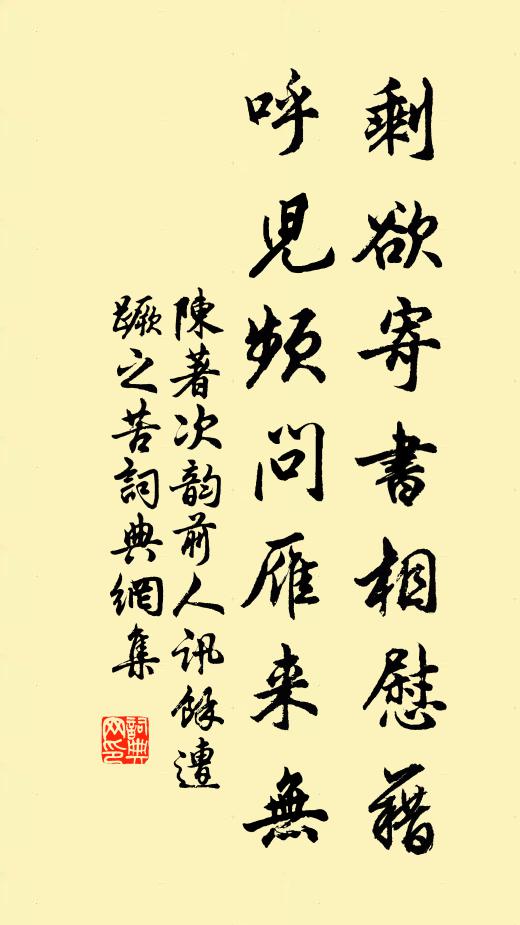 剩欲寄書相慰藉
呼兒頻問雁来無
陳著次韵前人訊餘遭
蹶之苦詞典網集
詞典
网印